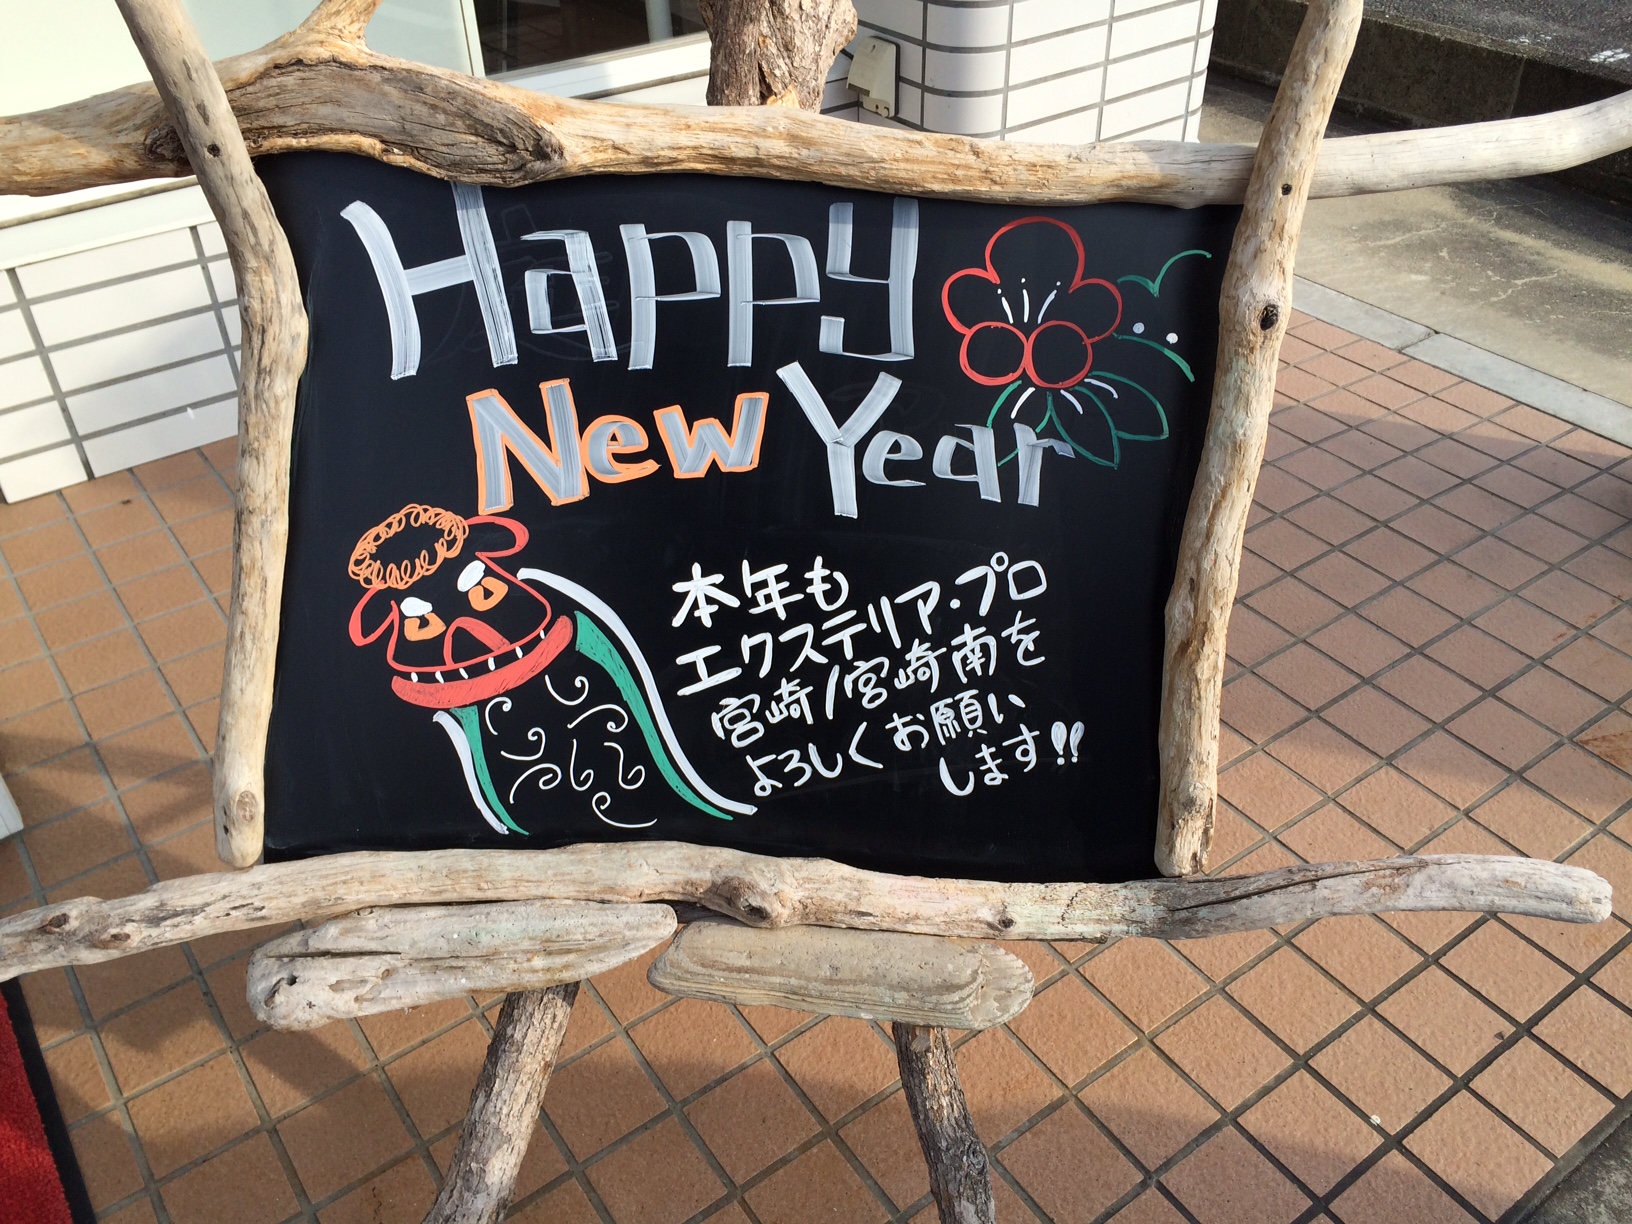 Happy
New Year
本年も
エクステリア・プロ
宮崎/宮崎南を
よろしくお願い
します!!